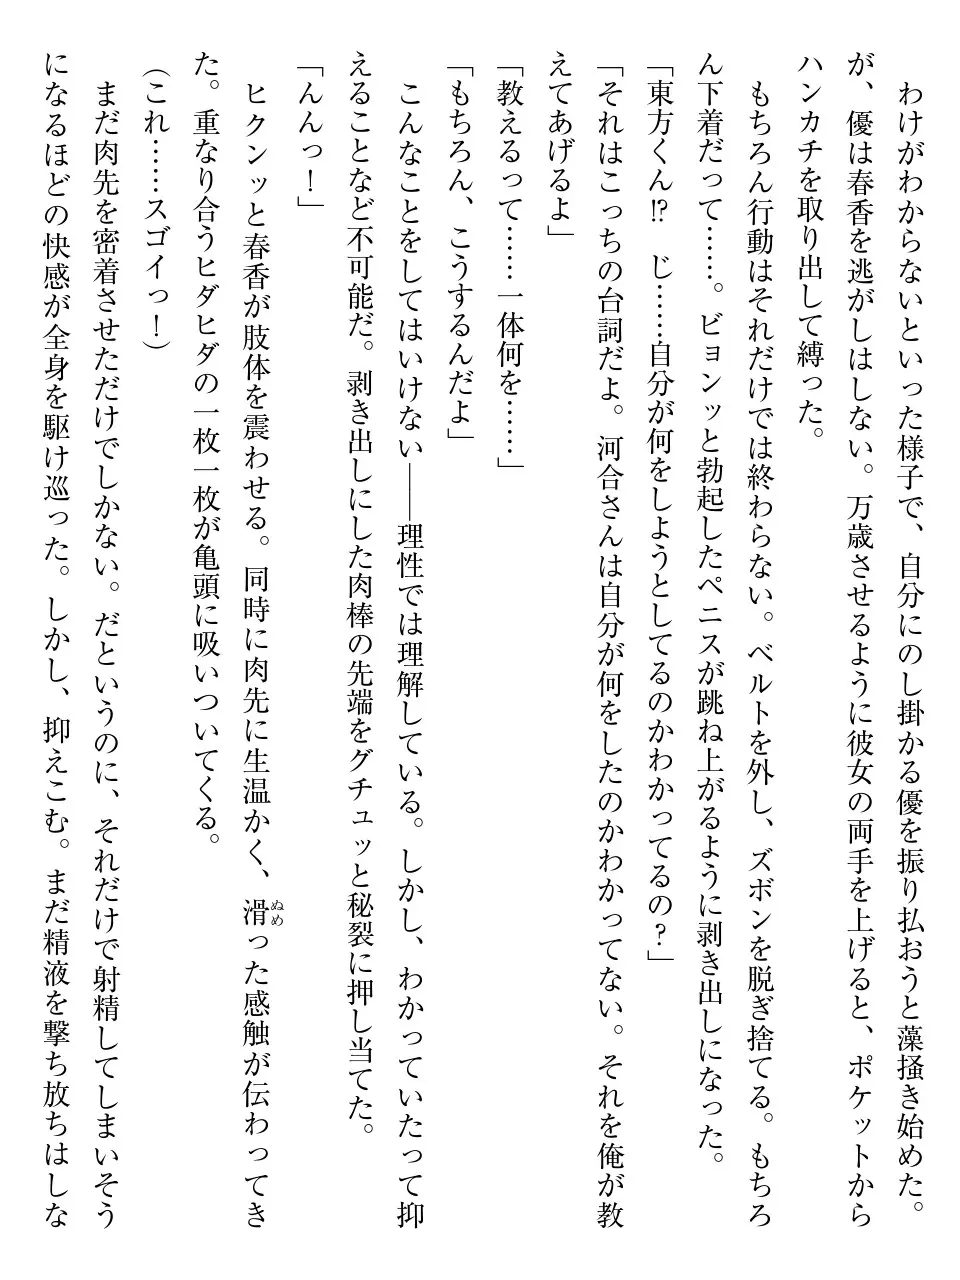 わけがわからないといった様子で、自分にのし掛かる優を振り払おうと藻掻き始めた。
が、優は春香を逃がしはしない。万歳させるように彼女の両手を上げると、ポケットから
ハンカチを取り出して縛った。
もちろん行動はそれだけでは終わらない。ベルトを外し、ズボンを脱ぎ捨てる。もちろ
ん下着だって……。ビョンッと勃起したペニスが跳ね上がるように剥き出しになった。
「東方くん!?　じ……自分が何をしようとしてるのかわかってるの？」
「それはこっちの台詞だよ。河合さんは自分が何をしたのかわかってない。それを俺が教
えてあげるよ」
「教えるって……一体何を……」
「もちろん、こうするんだよ」
こんなことをしてはいけない――理性では理解している。しかし、わかっていたって抑
えることなど不可能だ。剥き出しにした肉棒の先端をグチュッと秘裂に押し当てた。
「んんっ！」
ヒクンッと春香が肢体を震わせる。同時に肉先に生温かく、滑（ぬめ）った感触が伝わってき
た。重なり合うヒダヒダの一枚一枚が亀頭に吸いついてくる。
（これ……スゴイっ！）
まだ肉先を密着させただけでしかない。だというのに、それだけで射精してしまいそう
になるほどの快感が全身を駆け巡った。しかし、抑えこむ。まだ精液を撃ち放ちはしな